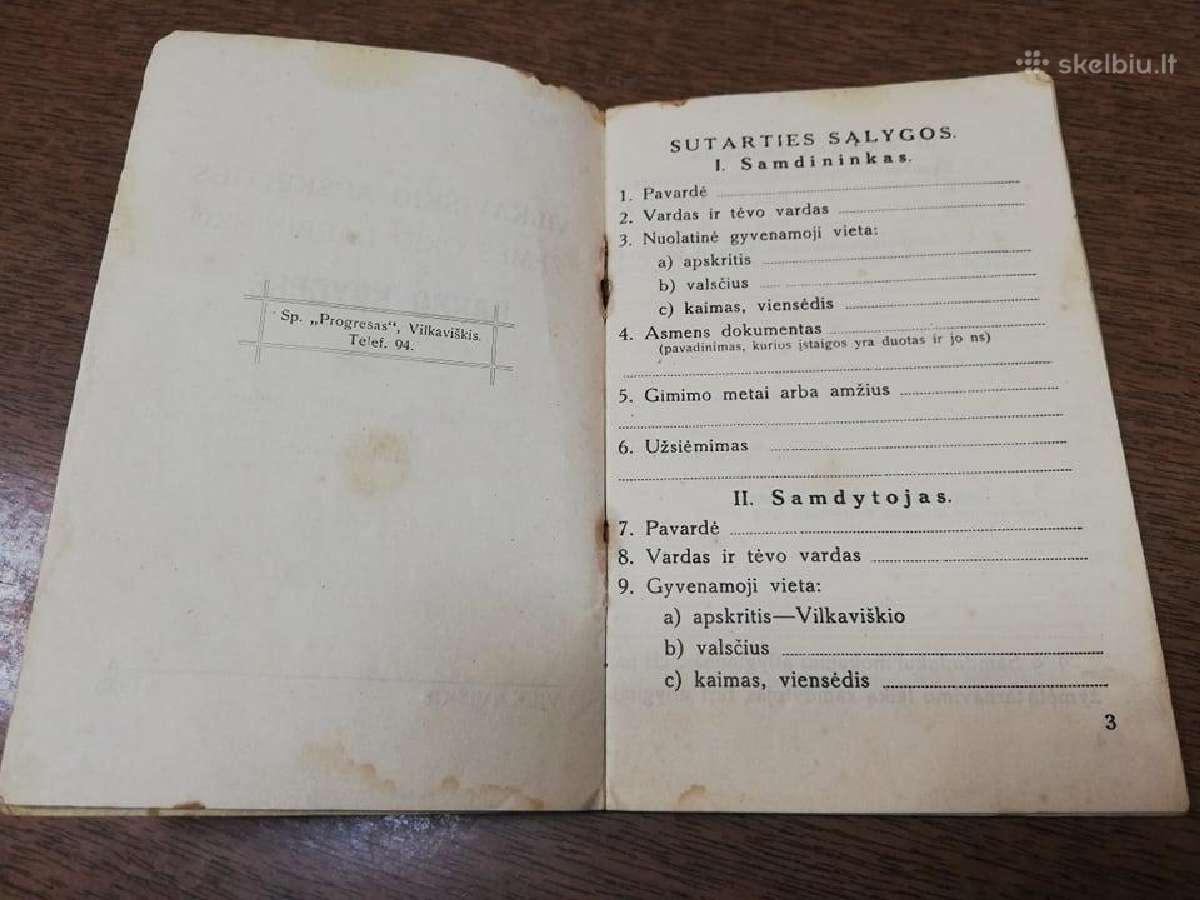 skelbiu.lt
Sp. „Progresas“, Vilkaviškis.
Telef. 94.
SUTARTIES SĄLYGOS.
I. Samdininkas.
1. Pavardė
2. Vardas ir tėvo vardas
3. Nuolatinė gyvenamoji vieta:
a) apskritis
b) valsčius
c) kaimas, viensėdis
4. Asmens dokumentas
(pavadinimas, kurios įstaigos yra duotas ir jo ns)
5. Gimimo metai arba amžius
6. Užsiėmimas
II. Samdytojas.
7. Pavardė
8. Vardas ir tėvo vardas
9. Gyvenamoji vieta:
a) apskritis—Vilkaviškio
b) valsčius
c) kaimas, viensėdis
3